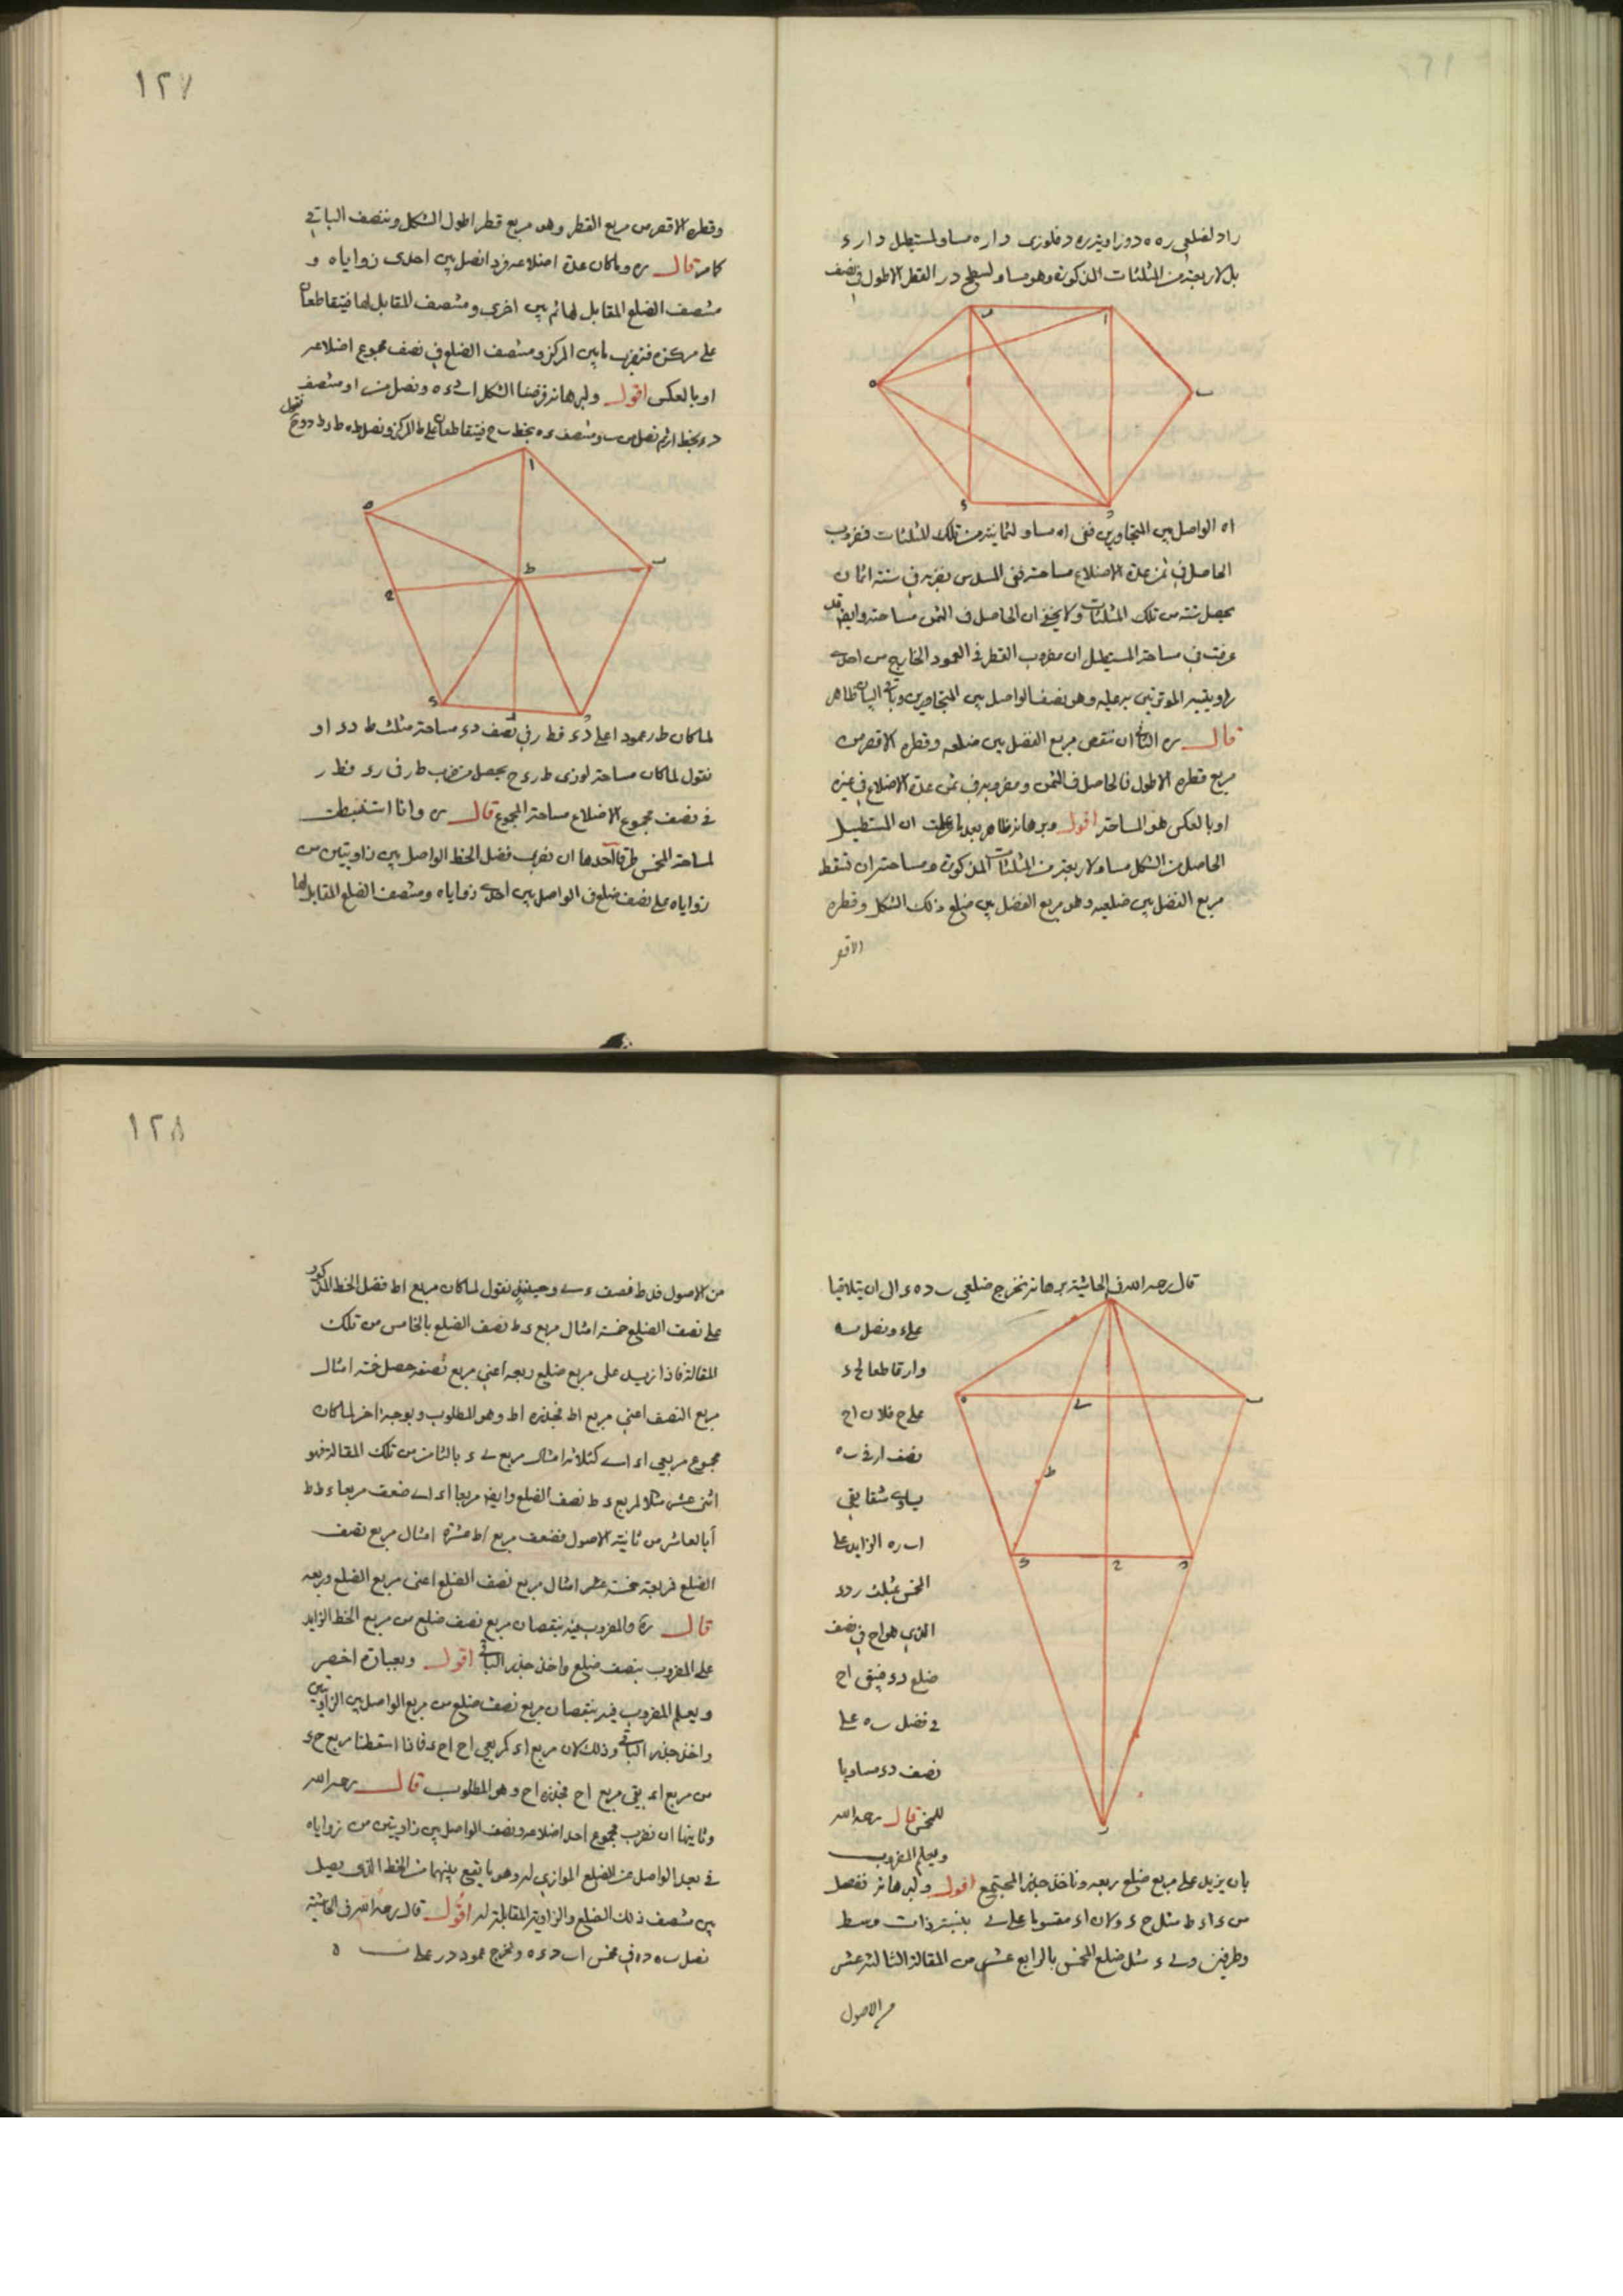 راد لضلعي ره ه د وزاوية ره د فلوزى د ا ره مساو لمستطيل د ا ر ء
بل لاربعة من المثلثات المذكورة وهو مساو لسطح د ر القطر الاطول في نصف
اه الواصل بين المتجاورين ففى اه مساو لثمانية من تلك المثلثات فضرب
الحاصل في ثمن عدة الاضلاع مساحته ففى المسدس نضربه في ستة اثمان
يحصل ستة من تلك المثلثات ولا يخفى ان الحاصل فى المثمن مساحته وايضا قد
عرفت في مساحة المستطيل ان مضروب القطر في العمود الخارج من احدى
زاويتيه الموترتين به عليه وهو نصف الواصل بين المتجاورين وباقى البيان ظاهر
قال ره الثانى ان تنقص مربع الفضل بين ضلعه وقطره الاقصر من
مربع قطره الاطول فالحاصل فى المثمن ومضروبه في ثمن عدة الاضلاع في غيره
او بالعكس هو المساحة اقول وبرهانه ظاهر بعد ما علمت ان المستطيل
الحاصل من الشكل مساو لاربعة من المثلثات المذكورة ومساحته ان تسقط
مربع الفضل بين ضلعيه وهو مربع الفضل بين ضلع ذلك الشكل وقطره
الاقصر
١٢٧
وقطره الاقصر من مربع القطر وهو مربع قطر اطول الشكل وننصف الباقي
كما مر قال ره وما كان عدة اضلاعه فردا نصل بين احدى زواياه و
منتصف الضلع المقابل لها ثم بين اخرى ومنتصف المقابل لها فيتقاطعان
على مركزه فنضرب ما بين المركز ومنتصف الضلع في نصف مجموع اضلاعه
او بالعكس اقول ولبرهانه فرضنا الشكل ا ب د ء ه ونصل من ا ومنتصف
د ء بخط ا ر ثم نصل من ب ومنتصف ء ه بخط ب ح فيتقاطعان على ط المركز ونصل ط ه ط ء ط د و ح فنقول
لما كان ط ر عمودا على د ء فط ر في نصف د ء مساحة مثلث ط د ء او
نقول لما كان مساحة لوزى ط ر ء ح يحصل من ضرب ط ر في ر ء فط ر
في نصف مجموع الاضلاع مساحة المجموع قال ره وانا استنبطت
لمساحة المخمس طرقا احدها ان نضرب فضل الخط الواصل بين زاويتين من
زواياه على نصف ضلع في الواصل بين احدى زواياه ومنتصف الضلع المقابل لها
قال رحمه الله في الحاشية برهانه نخرج ضلعي ب د ه ء الى ان يتلاقيا
على ر ونصل ب ه
وا ر قاطعا لد ء
على ح فلان ا ح
نصف ا ر في ب ه
يساوى شقايقي
ا ب ر ه الزايد على
المخمس بمثلث ر د ء
الذي هو ا ح في نصف
ضلع د ء فيبقى ا ح
في فضل ب ه على
نصف د ء مساويا
للمخمس قال رحمه الله
ويعلم المضروب
بان يزيد على مربع ضلع ربعه وناخذ جذر المجتمع اقول ولبرهانه نفصل
من ء ا ء ط مثل ح ء ولان ا ء مقسوما على ى بنسبة ذات وسط
وطرفين وى ء مثل ضلع المخمس بالرابع عشر من المقالة الثالثة عشر
من الاصول
١٢٨
من الاصول فء ط نصف ء ى وحينئذ نقول لما كان مربع ا ط فضل الخط المذكور
على نصف الضلع خمسة امثال مربع ء ط نصف الضلع بالخامس من تلك
المقالة فاذا زيد على مربع ضلع ربعه اعني مربع نصفه حصل خمسة امثال
مربع النصف اعني مربع ا ط فجذره ا ط وهو المطلوب وبوجه اخر لما كان
مجموع مربعي ا ء ا ى كثلاثة امثال مربع ى ء بالثامن من تلك المقالة فهو
اثنى عشر مثلا لمربع ء ط نصف الضلع وايضا مربعا ا ء ا ى ضعف مربعا ء ط ط
ا بالعاشر من ثانية الاصول فضعف مربع ا ط عشرة امثال مربع نصف
الضلع فمربعه خمسة امثال مربع نصف الضلع اعنى مربع الضلع وربعه
قال ره والمضروب فيه بنقصان مربع نصف ضلع من مربع الخط الزايد
على المضروب بنصف ضلع واخذ جذر الباقي اقول وبعبارة اخصر
ويعلم المضروب فيه بنقصان مربع نصف ضلع من مربع الواصل بين الزاويتين
واخذ جذر الباقي وذلك لان مربع ا ء كمربعي ا ح ح ء فاذا اسقطنا مربع ح ء
من مربع ا ء بقي مربع ا ح فجذره ا ح وهو المطلوب قال رحمه الله
وثانيها ان نضرب مجموع احد اضلاعه ونصف الواصل بين زاويتين من زواياه
في بعد الواصل عن الضلع الموازي له وهو ما يقع بينهما من الخط الذى يصل
بين منتصف ذلك الضلع والزاوية المقابلة له اقول قال رحمه الله في الحاشية
نصل ب ه د ه في مخمس ا ب د ء ه ونخرج عمود د ر على ب ه